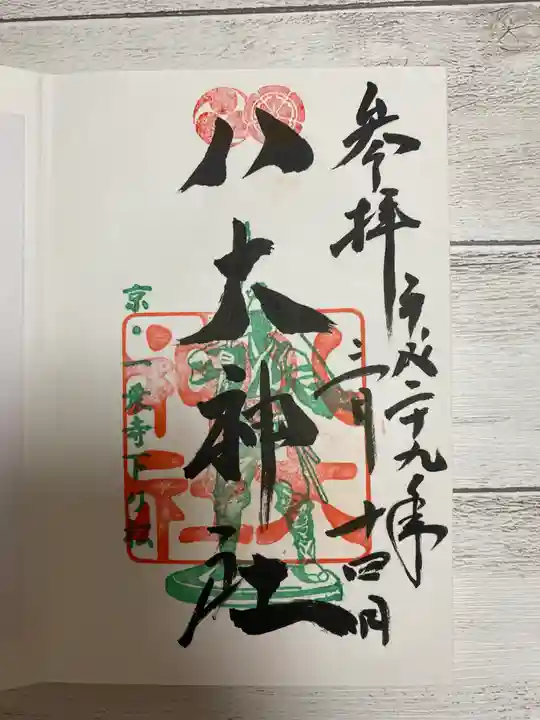 参拝
平成二十九年
三月
十四日
八大神社
京・一乗寺下り松